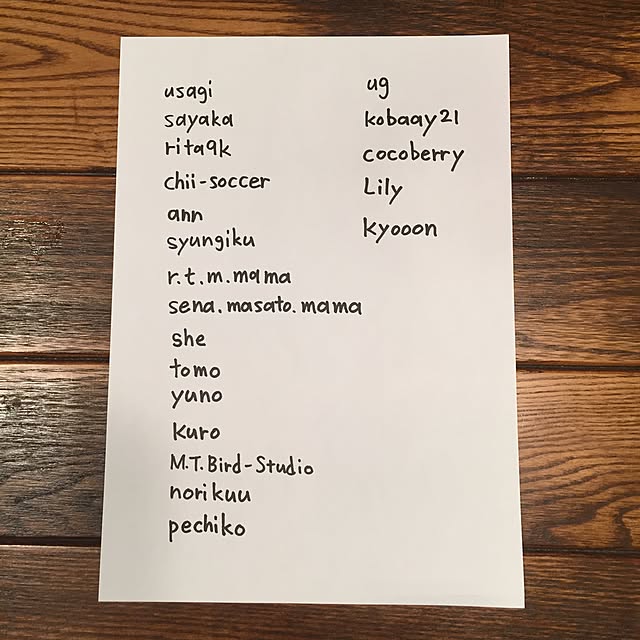 usagi
sayaka
rita9k
chii-soccer
ann
syungiku
r.t.m.mama
sena.masato.mama
she
tomo
yuno
kuro
M.T.Bird-Studio
norikuu
pechiko
ug
kobaay21
cocoberry
Lily
kyooon